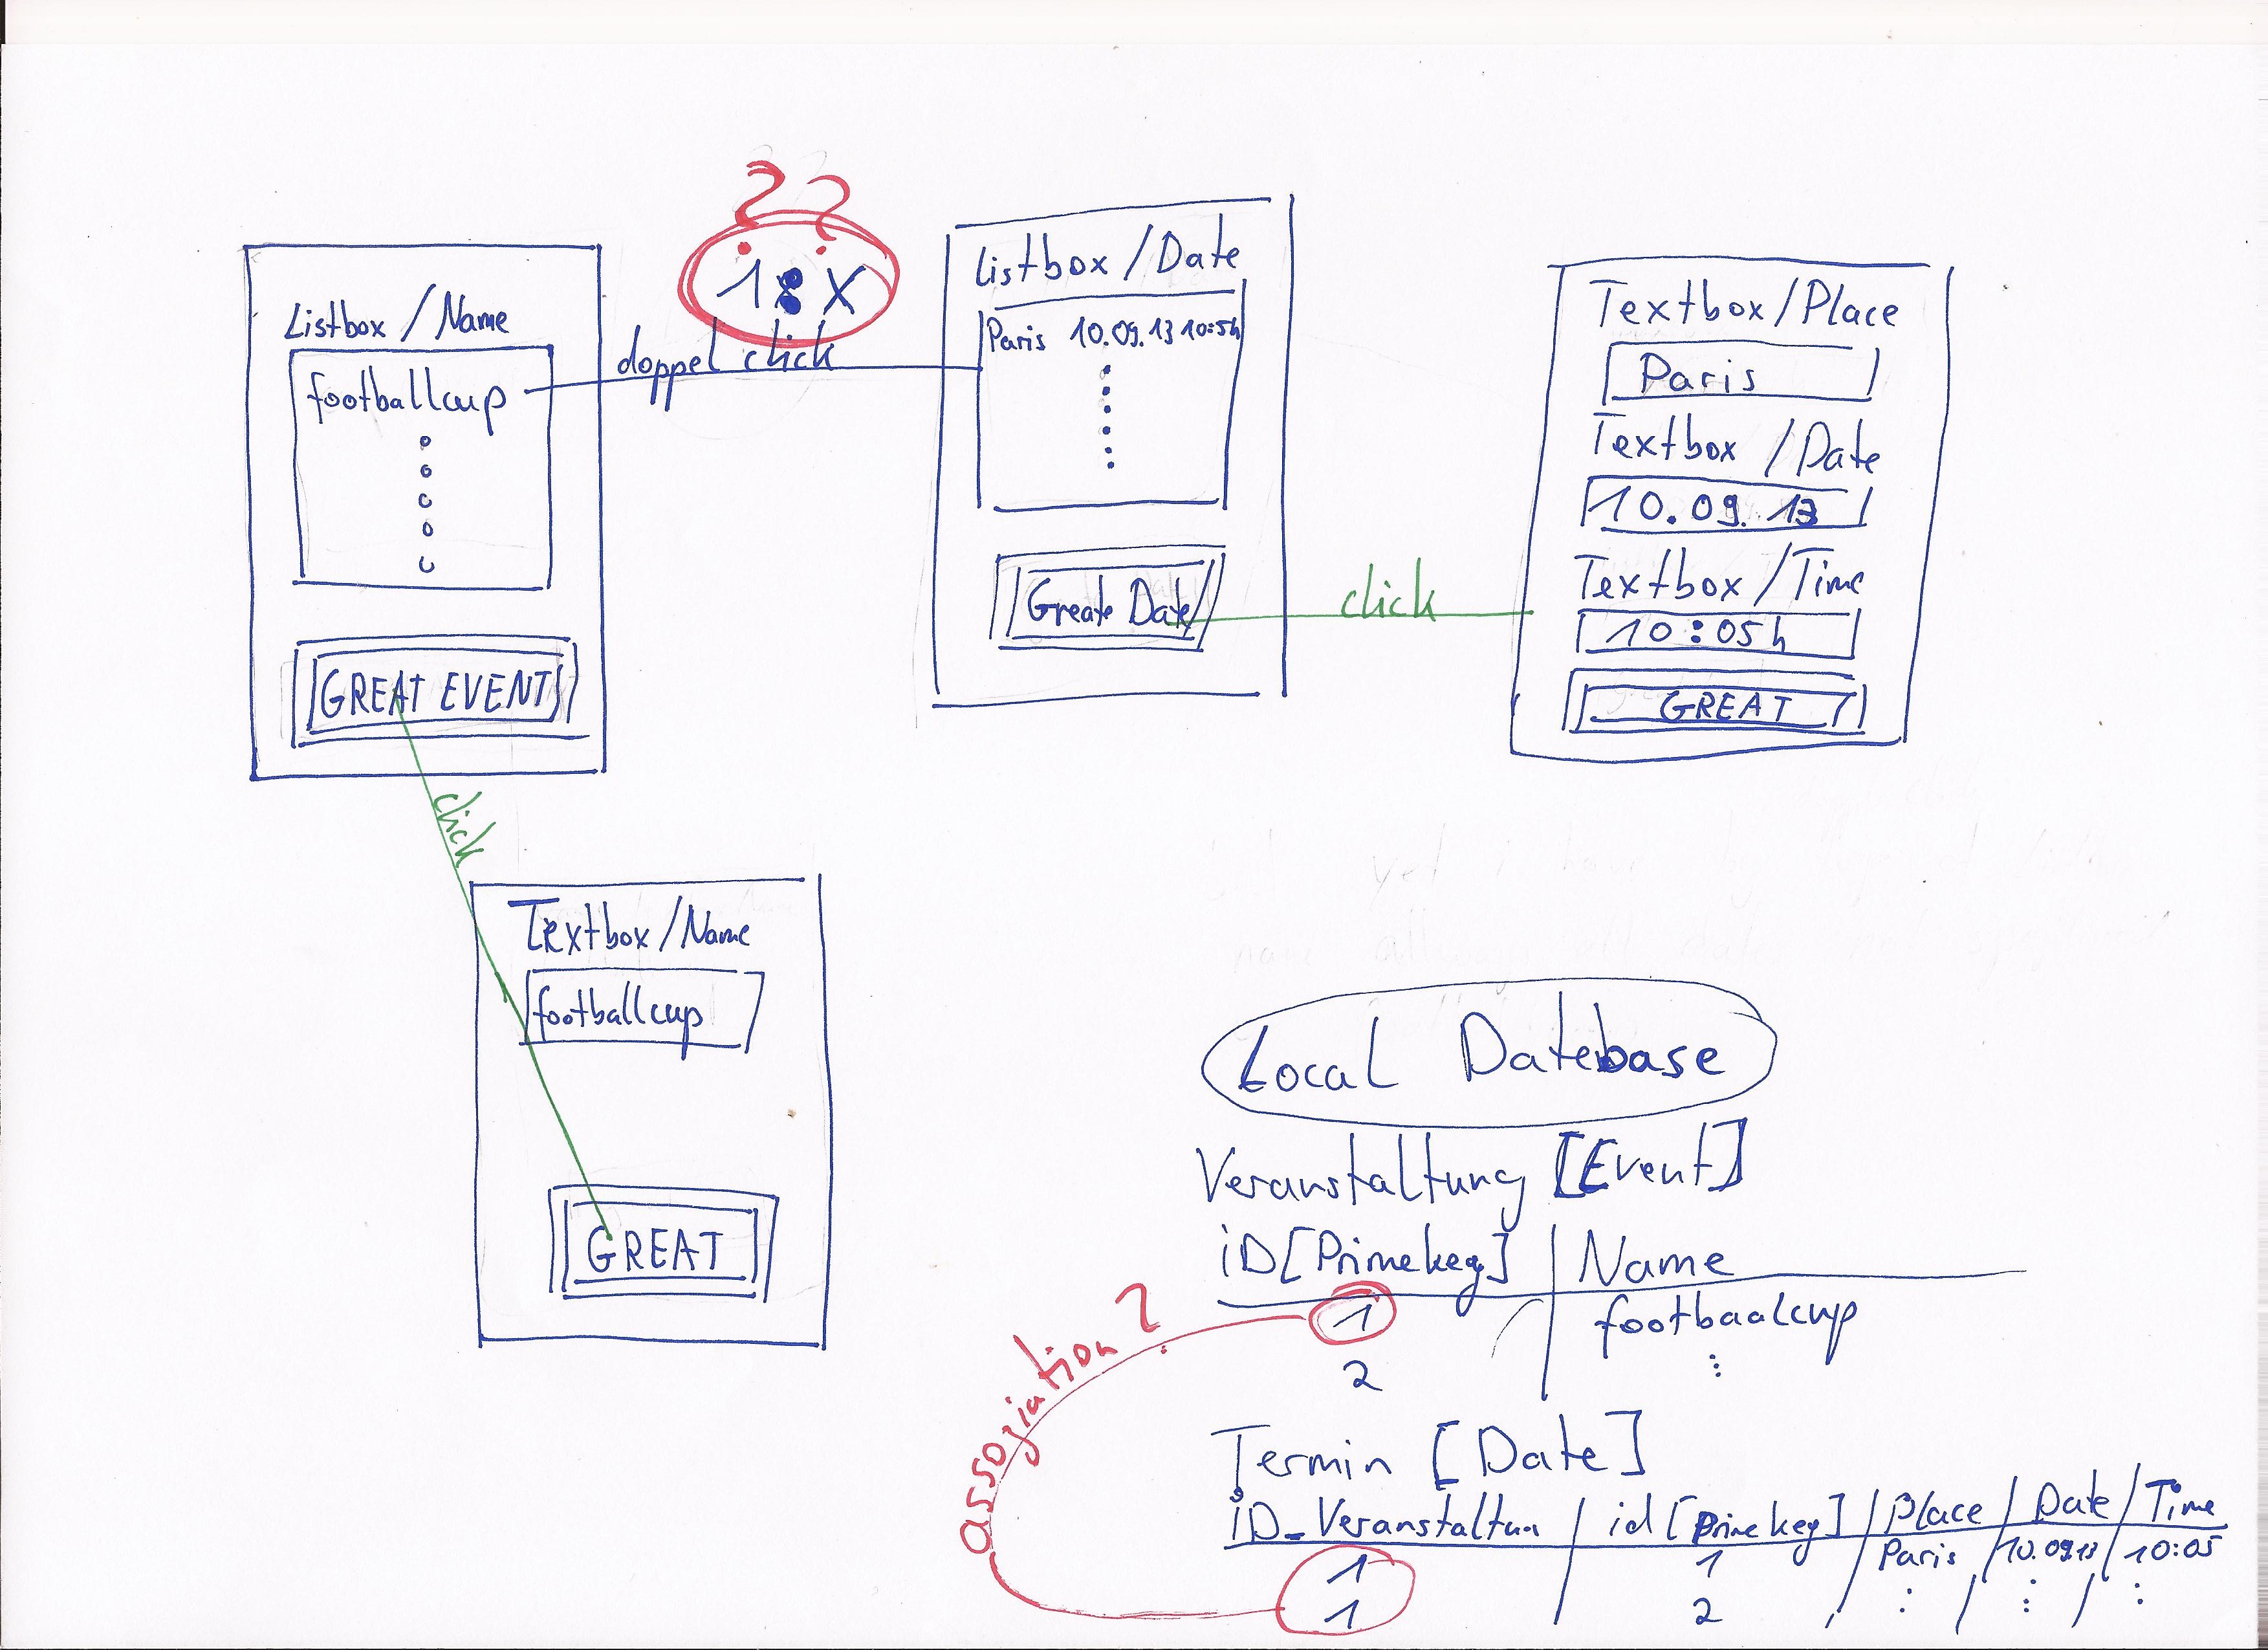 ??
1:X
Listbox /Name
footballcup
GREAT EVENT
doppel click
Listbox /Date
Paris 10.09.13 10:5h
Greate Date
click
Textbox/Place
Paris
Textbox /Date
10.09.13
Textbox /Time
10:05h
GREAT
click
Textbox/Name
footballcup
GREAT
Local Datebase
Veranstaltung [Event]
iD[Primekey] | Name
1 footbaalcup
2
assoziation ?
Termin [Date]
iD_Veranstaltun / id [Prime key] / Place / Date / Time
1 1 Paris / 10.09.13 / 10:05
1 2